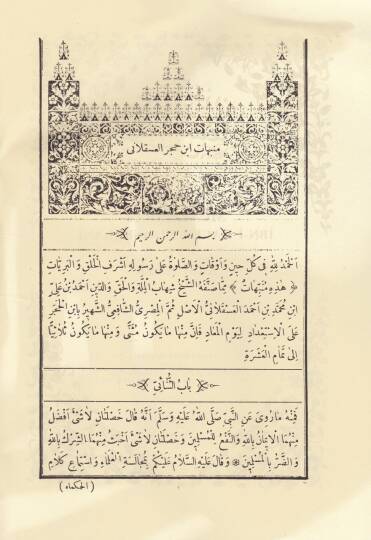 منبهات ابن حجر العسقلانى
بسم الله الرحمن الرحيم
اَلْحَمْدُ لِلّٰهِ فِى كُلِّ حِينٍ وَاَوْقَاتٍ وَالصَّلَوةُ عَلٰى رَسُولِهِ اَشْرَفِ الْخَلْقِ وَالْبَرِيَّاتِ
﴿ هٰذِهِ مُنَبِّهَاتٌ ﴾ مِمَّا صَنَّفَهُ الشَّيْخُ شِهَابُ الْمِلَّةِ وَالْحَقِّ وَالدِّينِ اَحْمَدُ بْنُ عَلِىِّ
ابْنِ مُحَمَّدِ بْنِ اَحْمَدَ الْعَسْقَلَانِىُّ الْاَصْلِ ثُمَّ الْمِصْرِىُّ الشَّافِعِىُّ الشَّهِيرُ بِابْنِ الْحَجَرِ
عَلَى الْاِسْتِعْدَادِ لِيَوْمِ الْمَعَادِ فَاِنَّ مِنْهَا مَا يَكُونُ مُثَنًّى وَمِنْهَا مَا يَكُونُ ثُلَاثِيًّا
اِلٰى تَمَامِ الْعَشَرَةِ
بَابُ الثُّنَائِىِّ
فَمِنْهُ مَا رُوِىَ عَنِ النَّبِىِّ صَلَّى اللّٰهُ عَلَيْهِ وَسَلَّمَ اَنَّهُ قَالَ خَصْلَتَانِ لَا شَىْءَ اَفْضَلُ
مِنْهُمَا اَلْاِيمَانُ بِاللّٰهِ وَالنَّفْعُ لِلْمُسْلِمِينَ وَخَصْلَتَانِ لَا شَىْءَ اَخْبَثُ مِنْهُمَا الشِّرْكُ بِاللّٰهِ
وَالضَّرُّ بِالْمُسْلِمِينَ ۞ وَقَالَ عَلَيْهِ السَّلَامُ عَلَيْكُمْ بِمُجَالَسَةِ الْعُلَمَاءِ وَاسْتِمَاعِ كَلَامِ
(الحكماء)